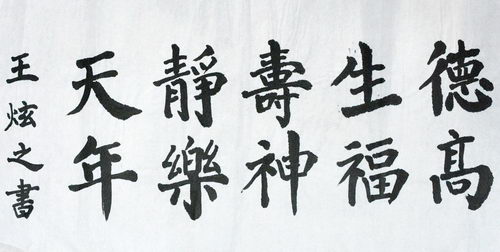 德高
生福
壽神
靜樂
天年
王炫之書